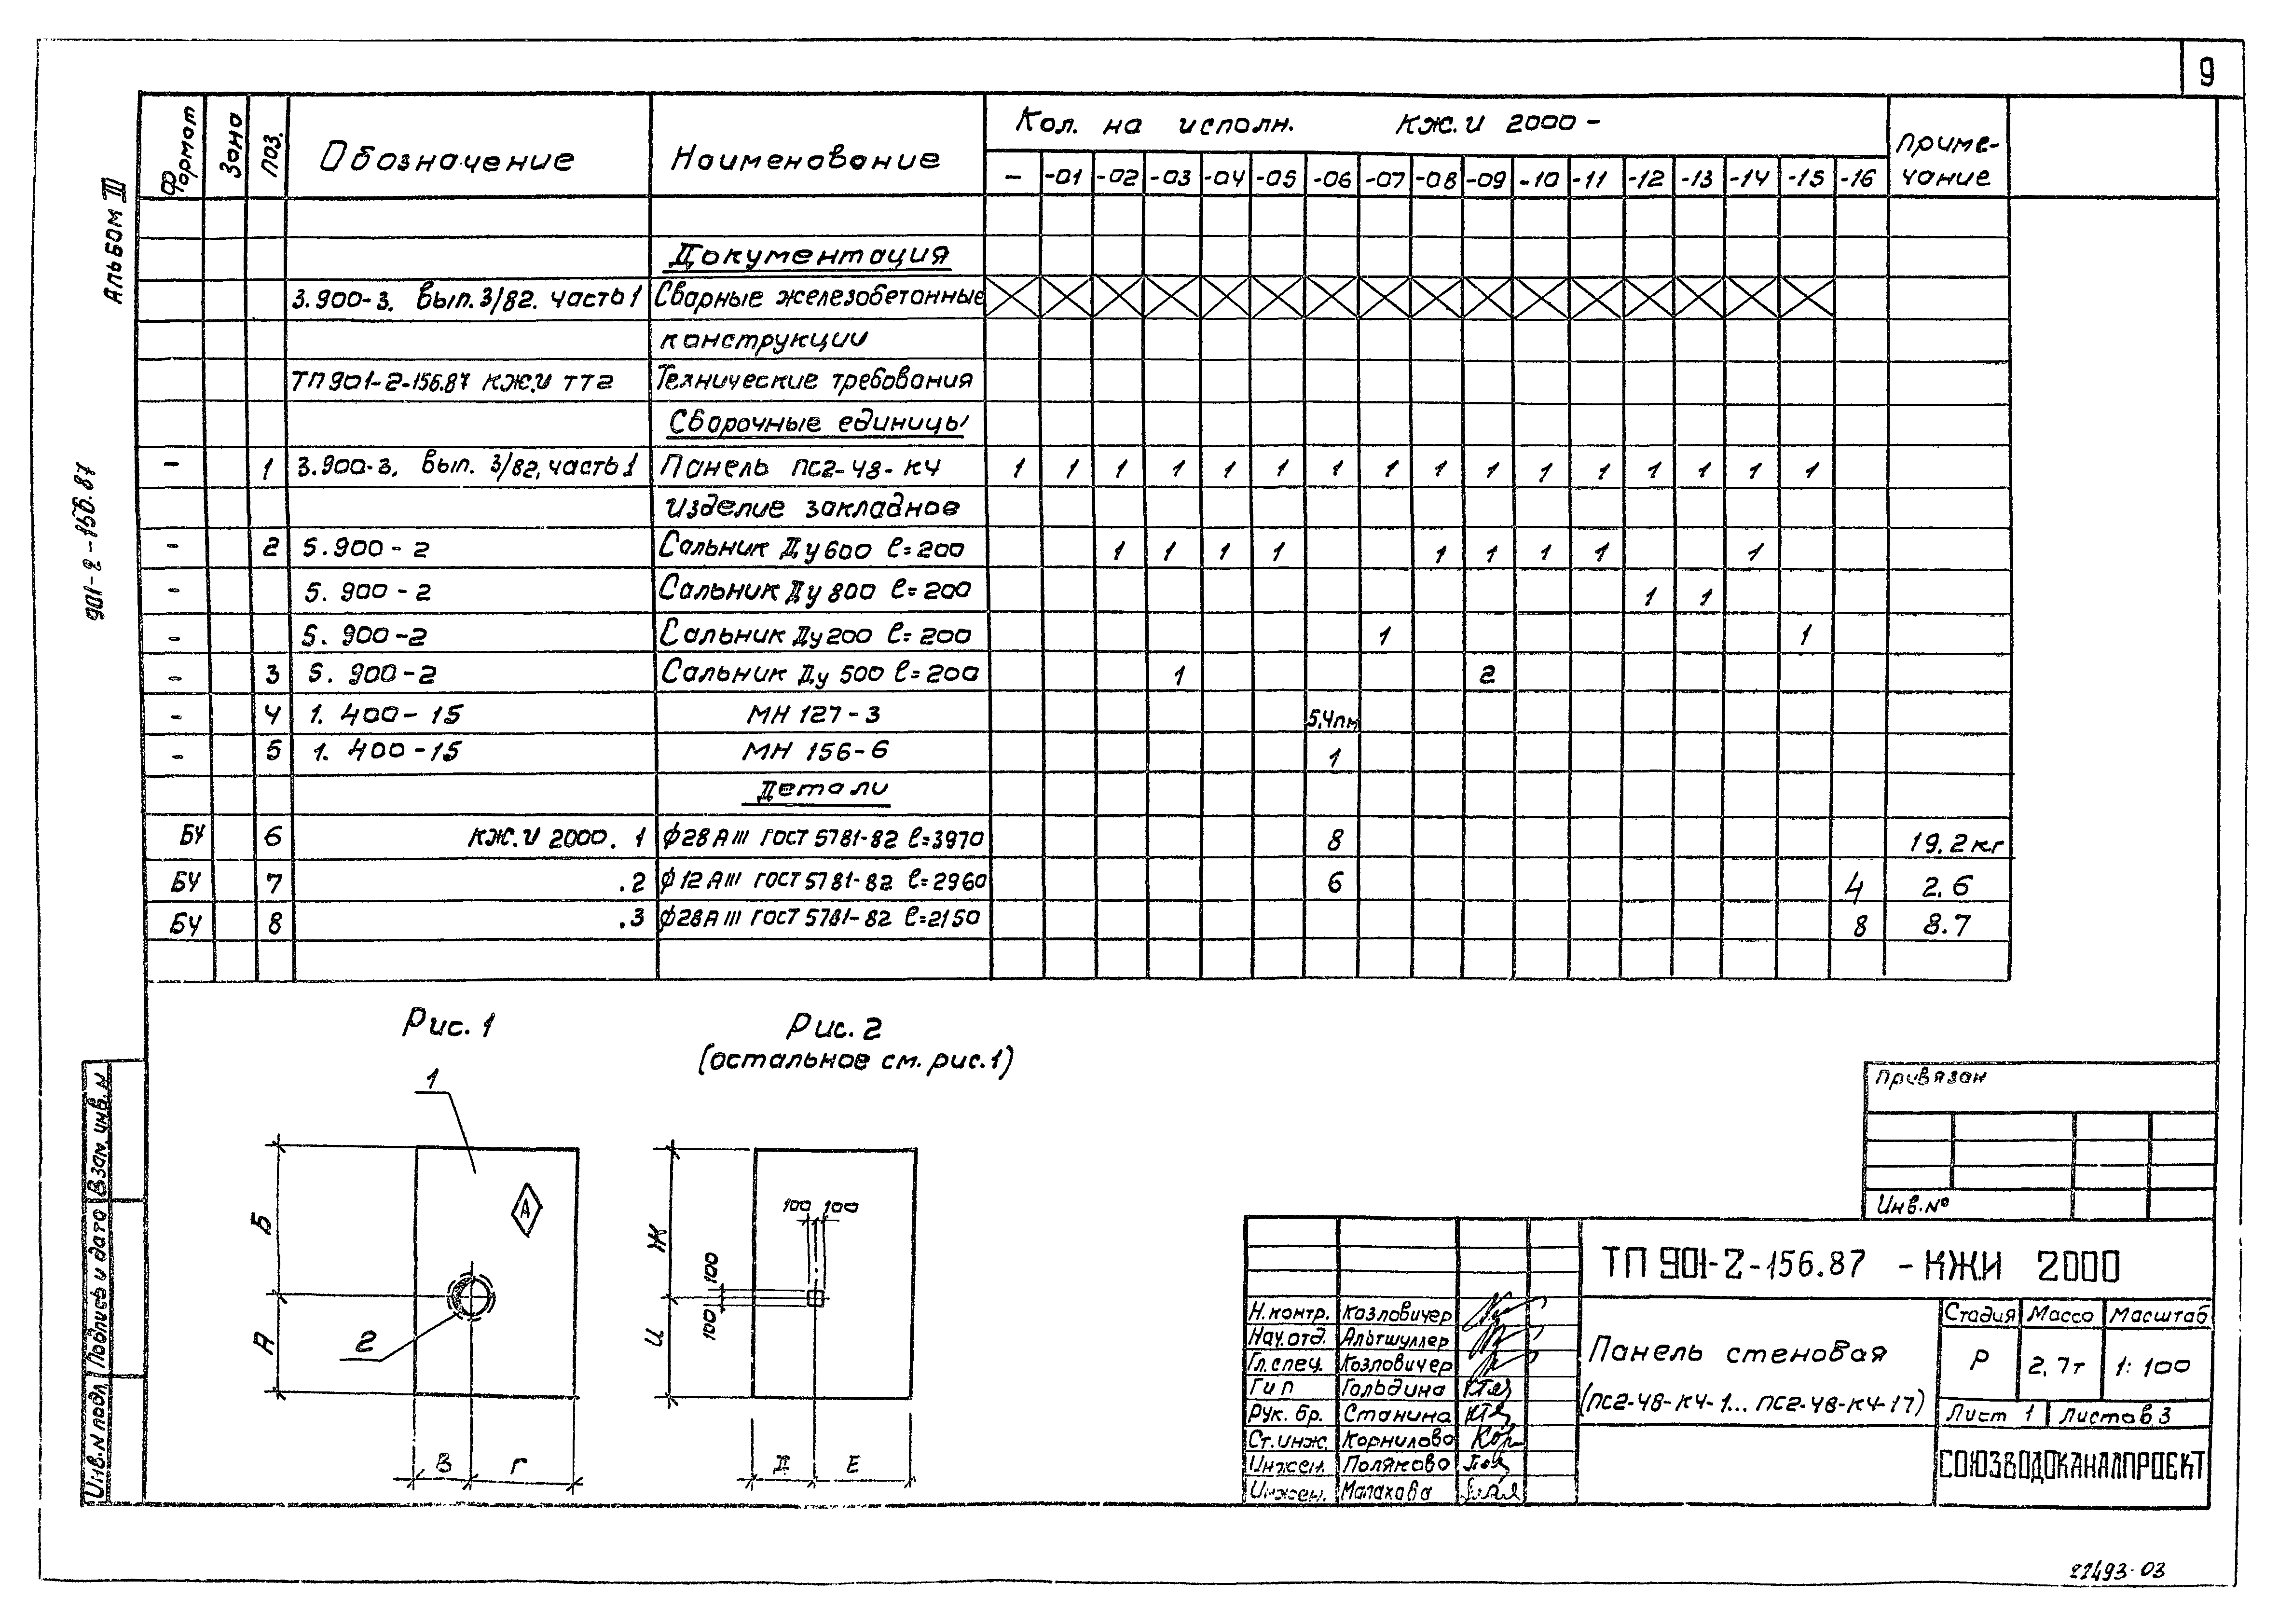 9
Альбом III
901-2-156.87
Формат Зона Поз. Обозначение Наименование Кол. на исполн. КЖ.И 2000 - Приме-
чание
- -01 -02 -03 -04 -05 -06 -07 -08 -09 -10 -11 -12 -13 -14 -15 -16
Документация
3.900-3. Вып. 3/82. часть 1 Сварные железобетонные
конструкции
ТП 901-2-156.87 КЖ.И ТТ2 Технические требования
Сборочные единицы
- 1 3.900-3. Вып. 3/82, часть 1 Панель ПС2-48-К4 1 1 1 1 1 1 1 1 1 1 1 1 1 1 1 1
Изделие закладное
- 2 5.900-2 Сальник Ду 600 ℓ=200 1 1 1 1 1 1 1 1 1
- 5.900-2 Сальник Ду 800 ℓ=200 1 1
- 5.900-2 Сальник Ду 200 ℓ=200 1 1
- 3 5.900-2 Сальник Ду 500 ℓ=200 1 2
- 4 1.400-15 МН 127-3 5,4пм
- 5 1.400-15 МН 156-6 1
Детали
БЧ 6 КЖ.И 2000. 1 ϕ28АIII ГОСТ 5781-82 ℓ=3970 8 19.2кг
БЧ 7 .2 ϕ12АIII ГОСТ 5781-82 ℓ=2960 6 4 2.6
БЧ 8 .3 ϕ28АIII ГОСТ 5781-82 ℓ=2150 8 8.7
Рис. 1
1
А
Б
А
2
В Г
Рис. 2
(остальное см. рис. 1)
100 100
Ж
100
100
И
Д Е
Привязан
Инв.№
ТП 901-2-156.87 - КЖ.И 2000
Н.контр. Козловичер
Нач.отд. Альтшуллер
Гл.спец. Козловичер
Гип Гольдина
Рук. бр. Станина
Ст.инж. Корнилова
Инжен. Полякова
Инжен. Малахова
Панель стеновая
(ПС2-48-К4-1... ПС2-48-К4-17)
Стадия Масса Масштаб
Р 2,7т 1:100
Лист 1 Листов 3
СОЮЗВОДОКАНАЛПРОЕКТ
Инв.N подл. Подпись и дата Взам. инв. N
22493-03